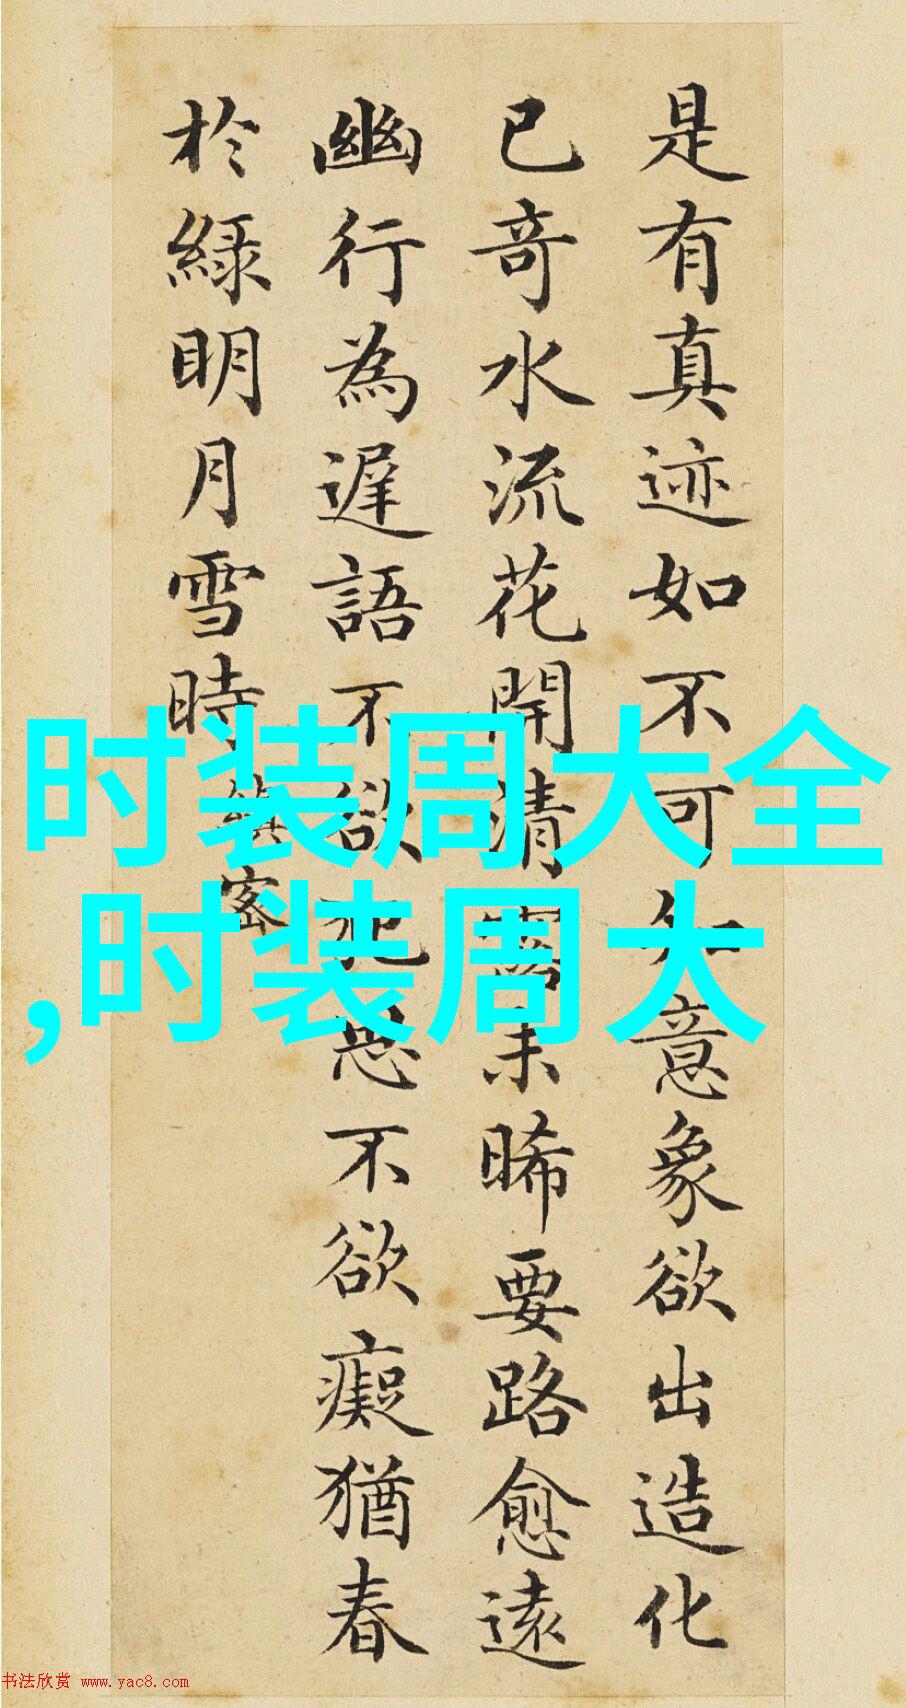 是有真迹如不可知意象欲出造化
已奇水流花開清露未晞要路愈遠
幽行為遲語不欲犯思不欲癡猶春
於綠明月雪時縝密
时装周大全
,时装周大
书法欣赏 www.yac8.com